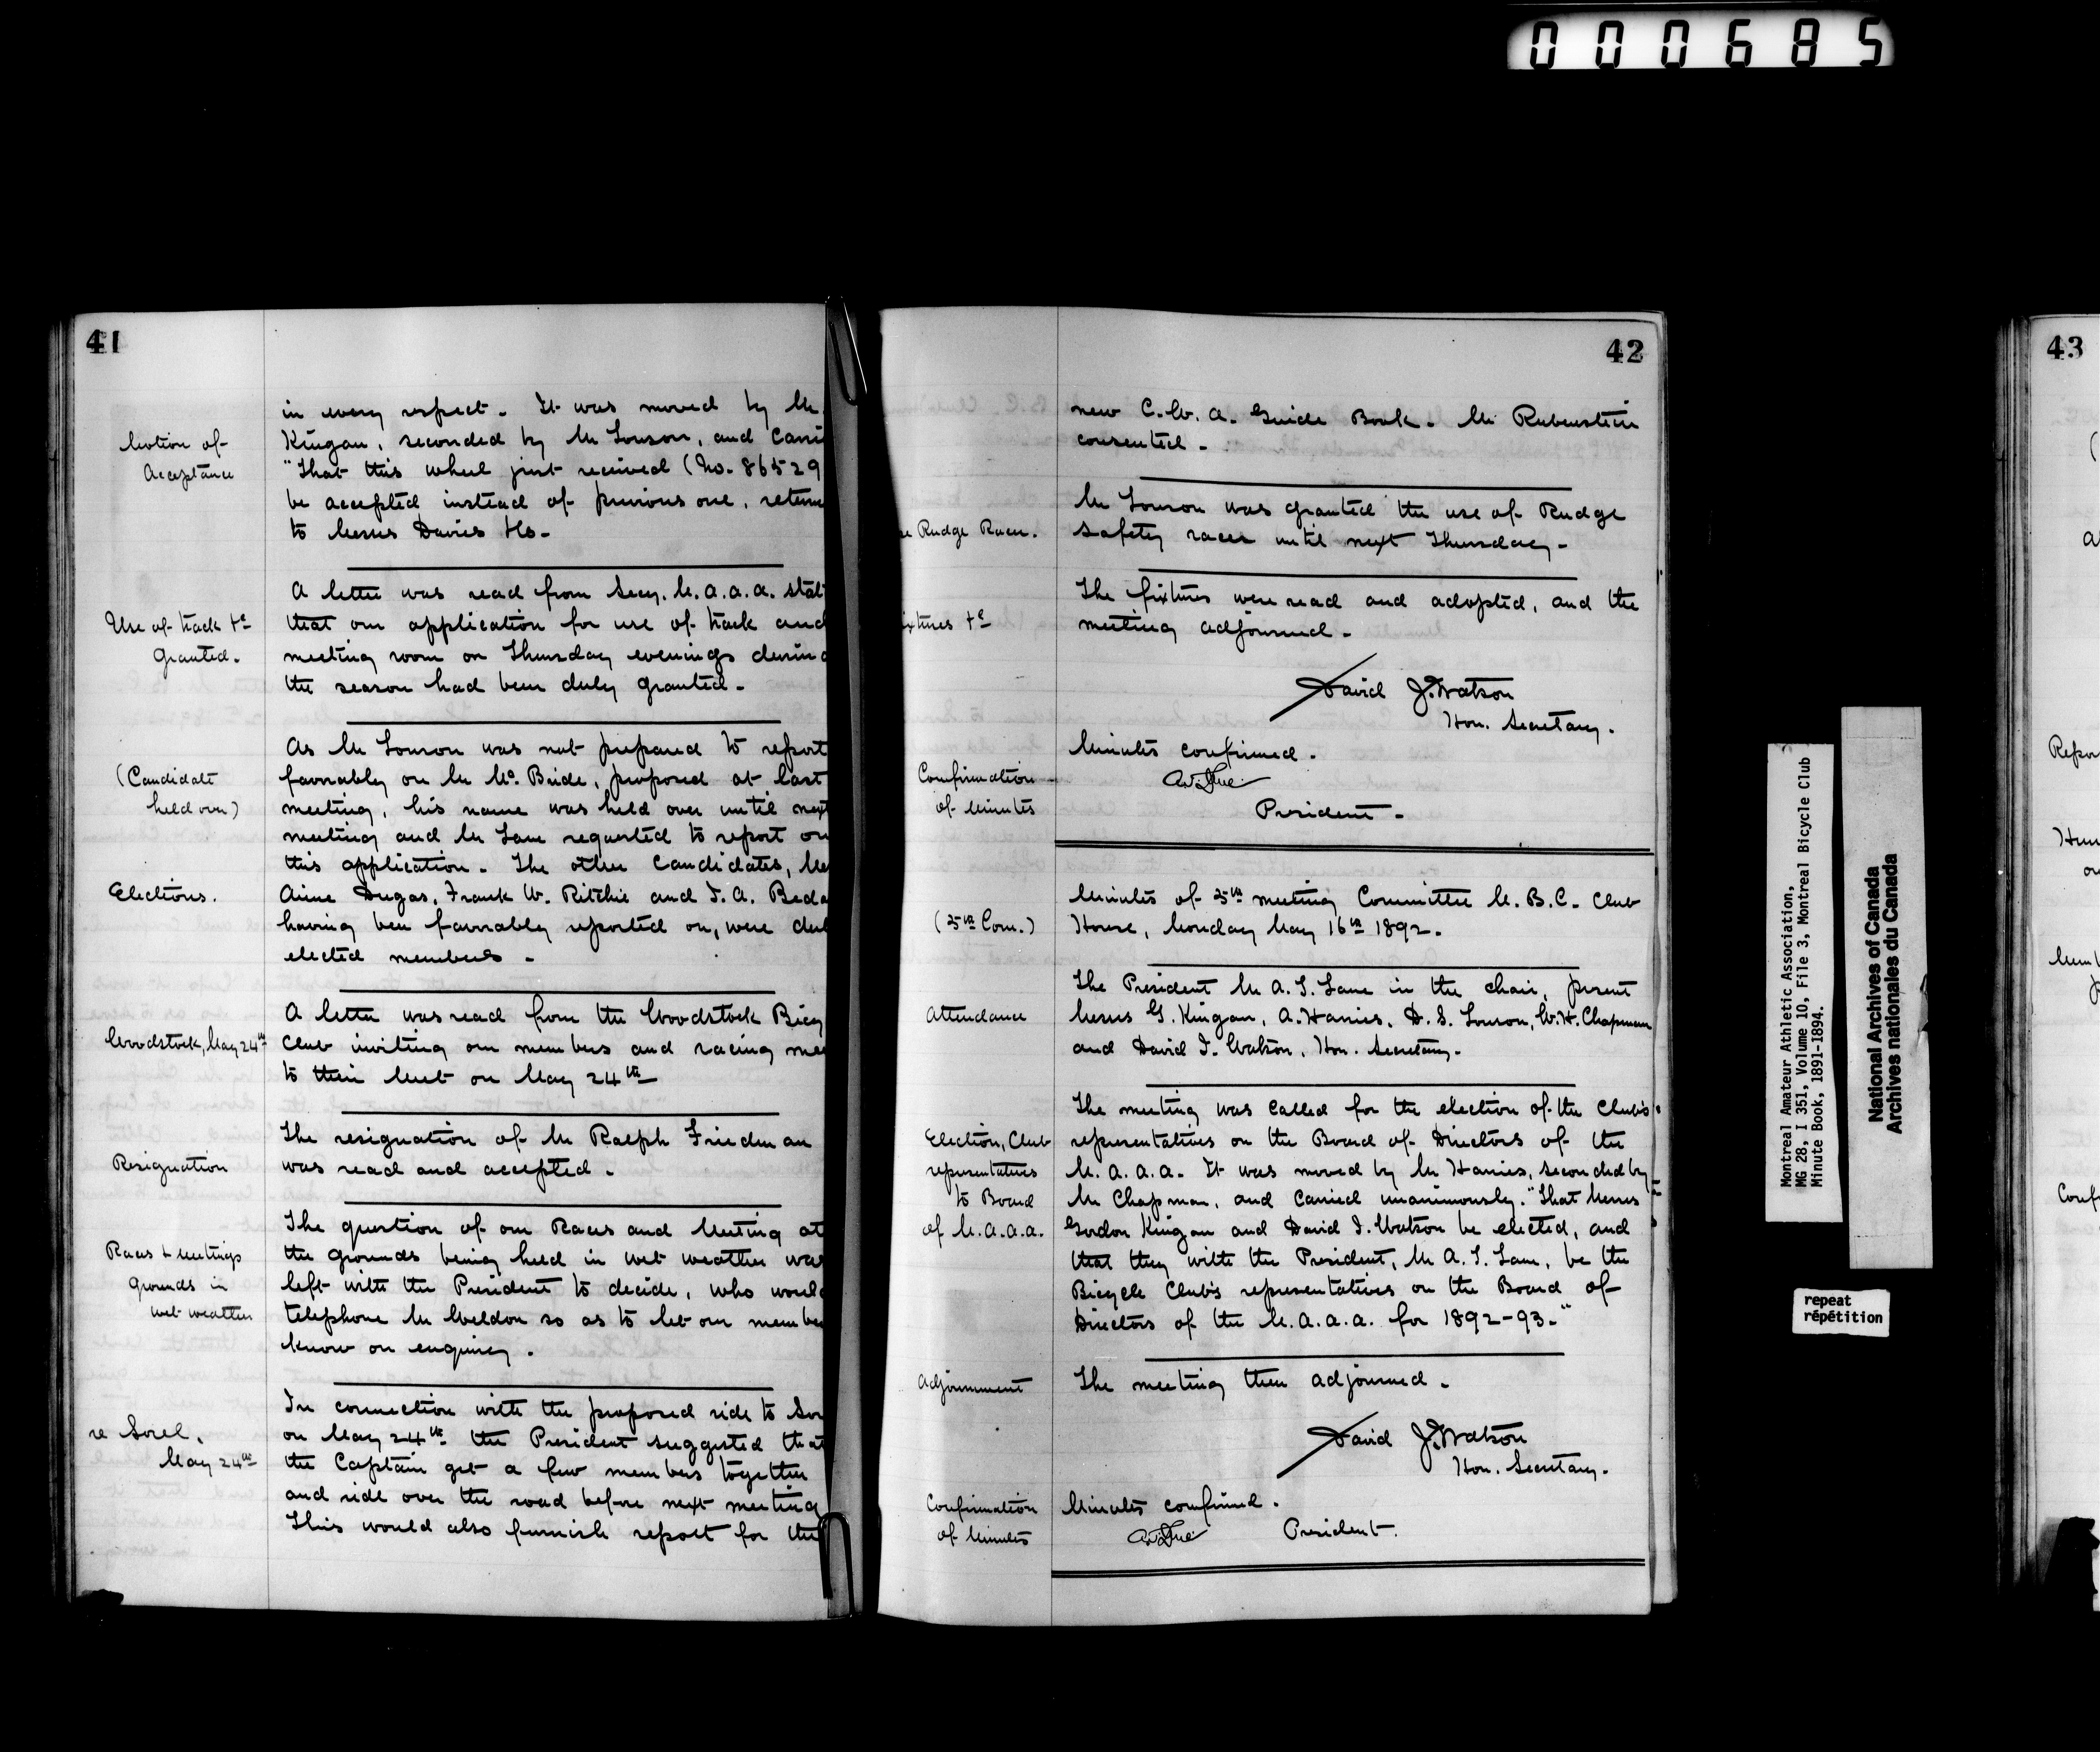 000685
41
in every respect. It was moved by Mr
Motion of
Acceptance
Kingan, seconded by Mr Louson, and Carri
"That this wheel just received (No. 86529
be accepted instead of previous one, returne
to Messrs Davies &Co.
A letter was read from Secy. M.A.A.A. stati
Use of track &c
Granted.
that our application for use of track and
meeting room on Thursday evenings during
the season had been duly granted.
As Mr Louson was not prepared to report
(Candidate
held over)
favorably on Mr McBride, proposed at last
meeting, his name was held over until next
meeting and Mr Lane requested to report on
this application. The other Candidates, Me
Elections.
Aime Dugas, Frank W. Ritchie and J. A. Beda
having been favorably reported on, were dul
elected members.
A letter was read from the Woodstock Bicy
Woodstock, May 24th
Club inviting our members and racing me
to their Meet on May 24th
The resignation of Mr Ralph Friedman
Resignation
was read and accepted.
The question of our Races and Meeting at
Races & Meetings
Grounds in
wet weather
the grounds being held in wet weather was
left with the President to decide, who would
telephone Mr Weldon so as to let our membe
know on enquiry.
In connection with the proposed ride to Sor
re Sorel,
May 24th
on May 24th the President suggested that
the Captain get a few members together
and ride over the road before next meeting
This would also furnish report for the
42
new C.W.A. Guide Book. Mr Rubenstein
consented.
Mr Louson was granted the use of Rudge
Rudge Racer.
safety racer until next Thursday.
The fixtures were read and adopted, and the
ixtures &c
meeting adjourned.
David J. Watson
Hon. Secretary.
Minutes confirmed.
Confirmation
of Minutes
President.
Minutes of 5th meeting Committee M.B.C. Club
(5th Com.)
House, Monday May 16th 1892.
The President Mr A. T. Lane in the chair, present
Attendance
Messrs G. Kingan, A. Harries, D. S. Louson, W. H. Chapman
and David J. Watson, Hon. Secretary.
The meeting was called for the election of the Club's
Election, Club
representatives
to Board
of M.A.A.A.
representatives on the Board of Directors of the
M.A.A.A. It was moved by Mr Harries, seconded by
Mr Chapman, and carried unanimously. "That Messrs
Gordon Kingan and David J. Watson be elected, and
that they with the President, Mr A. T. Lane, be the
Bicycle Club's representatives on the Board of
Directors of the M.A.A.A. for 1892-93."
Adjournment
The meeting then adjourned.
David J. Watson
Hon. Secretary.
Confirmation
of Minutes
Minutes confirmed.
President.
Montreal Amateur Athletic Association,
MG 28, I 351, Volume 10, File 3, Montreal Bicycle Club
Minute Book, 1891-1894.
National Archives of Canada
Archives nationales du Canada
repeat
répétition
43